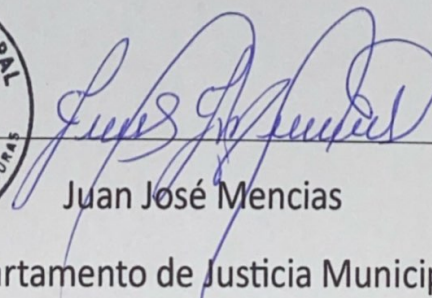 PAL
URAS
Juan José Mencias
artamento de Justicia Municip